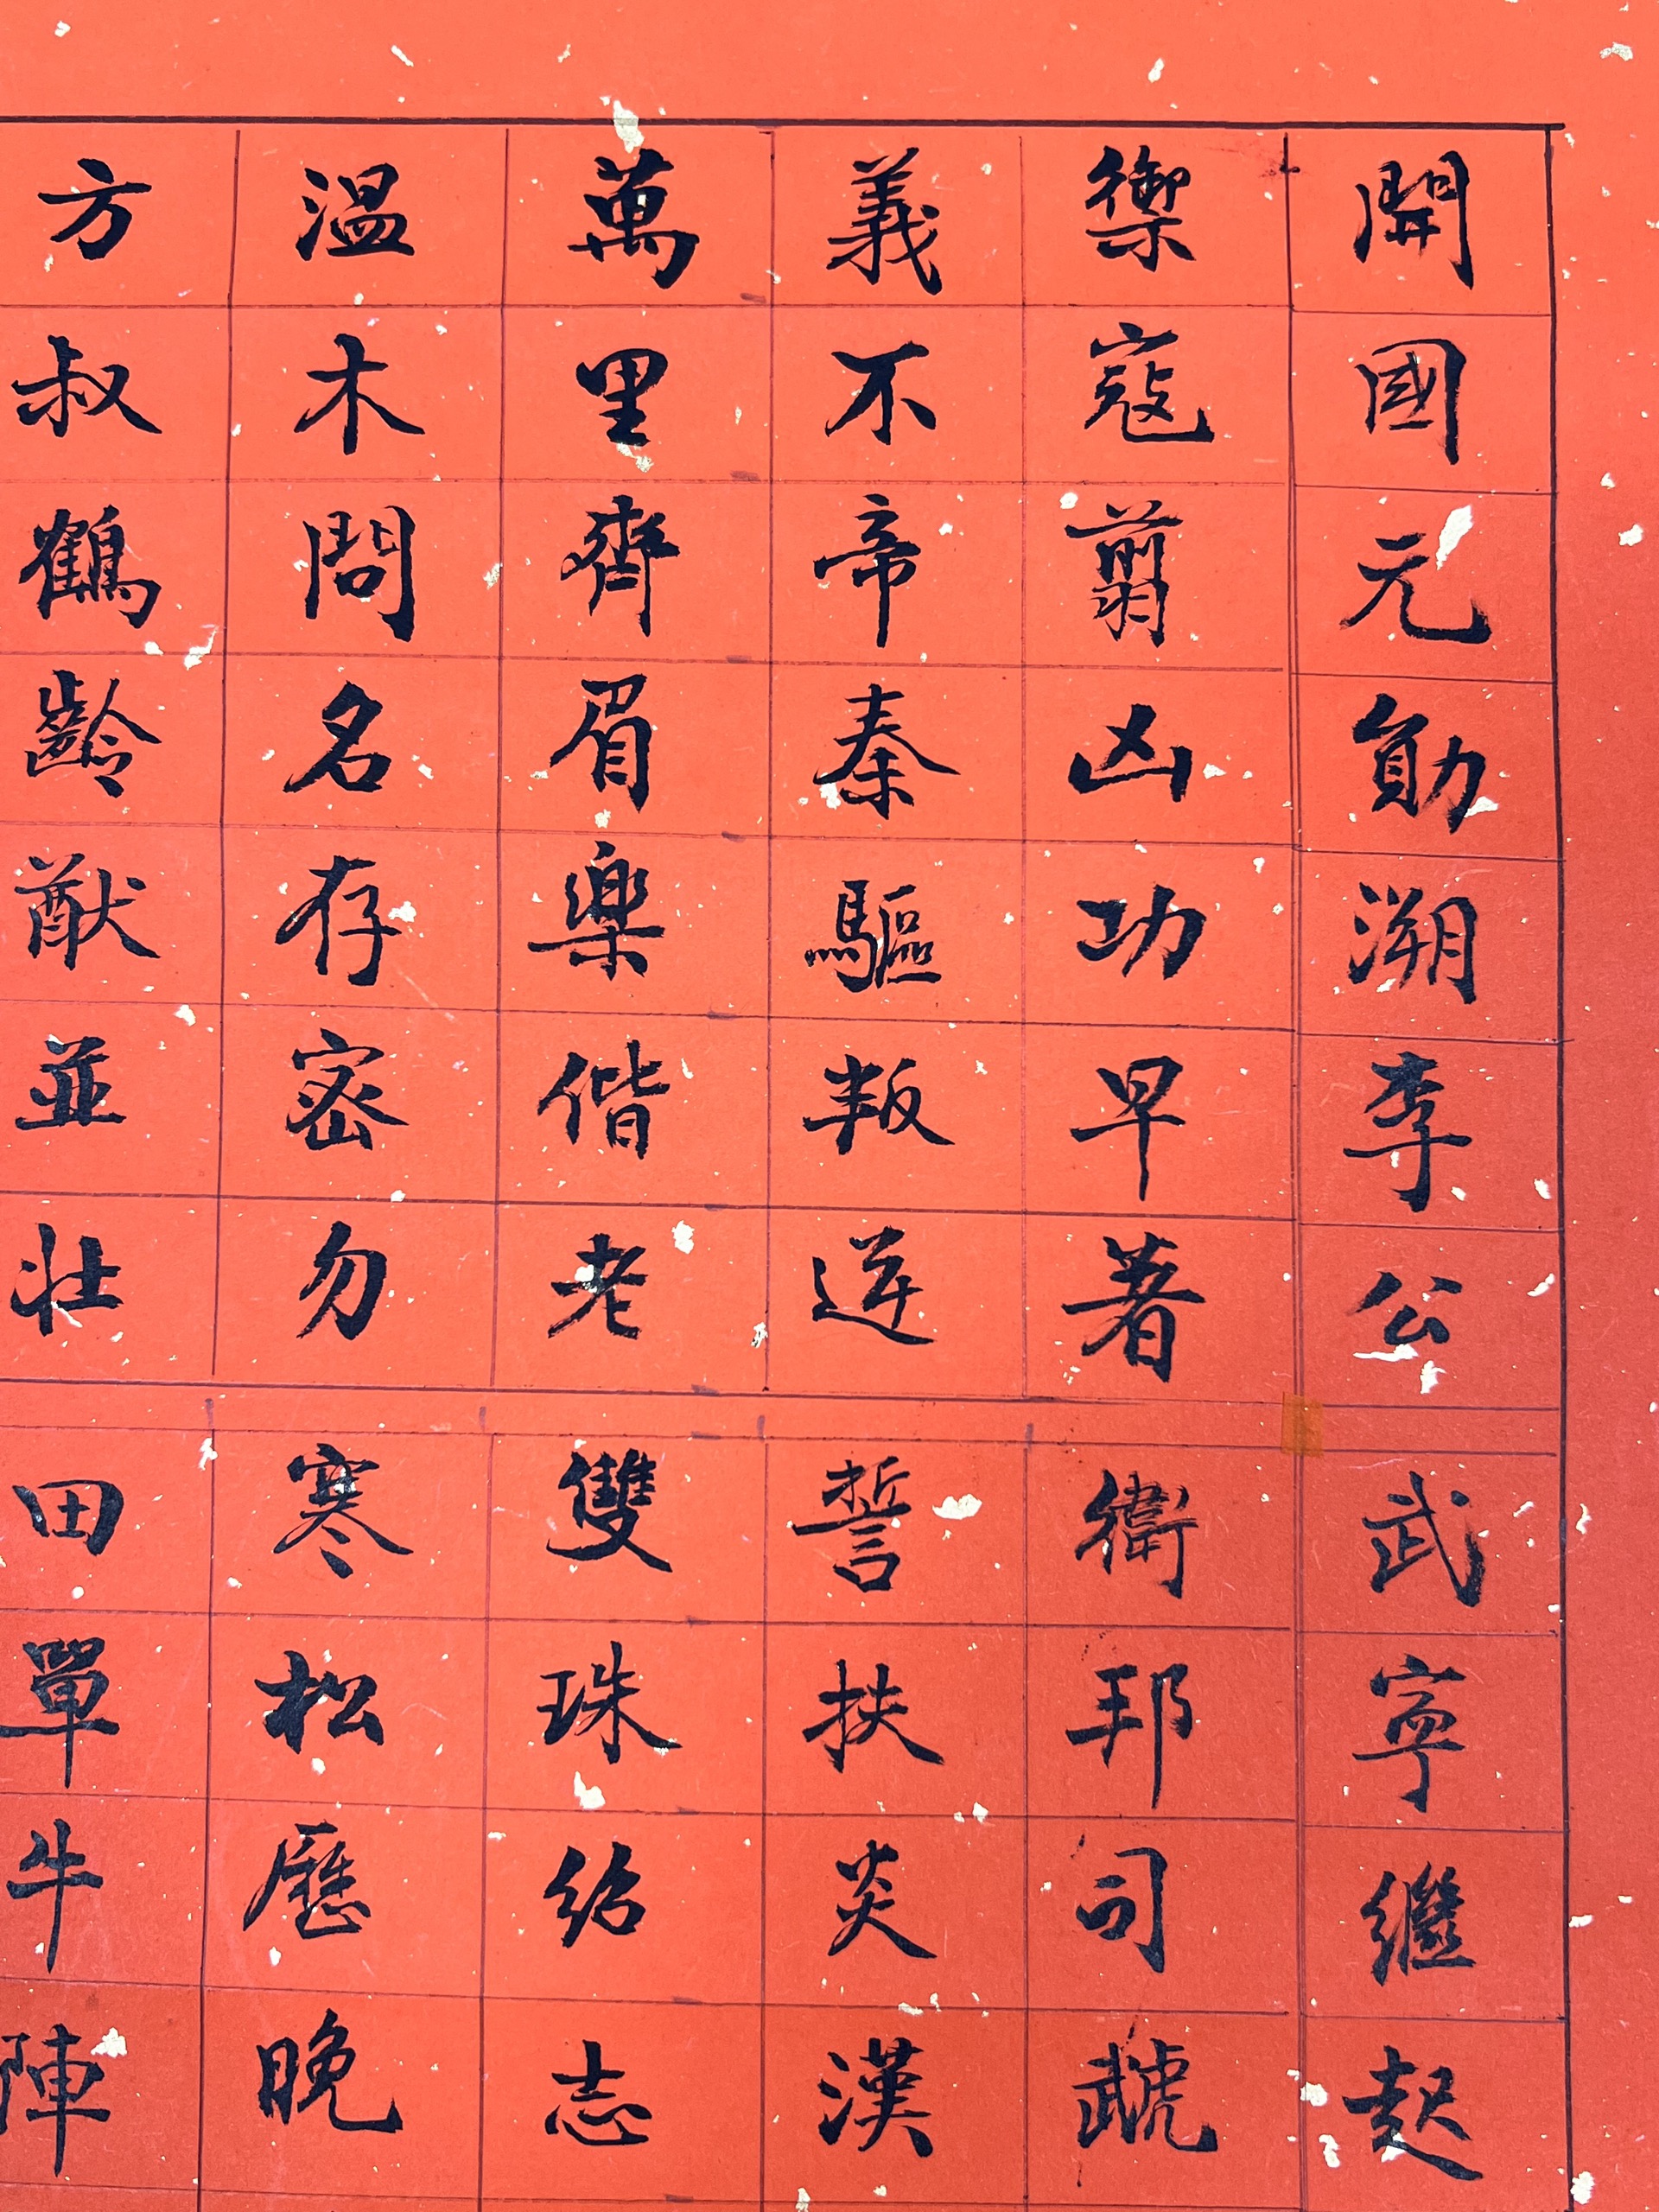 開國元勛溯李公武寧繼起
禦寇翦凶功早著衛邦司
義不帝秦驅叛逆誓扶炎漢
萬里齊眉樂偕老雙珠紹志
溫木問名存密勿寒松歷晚
方叔鶴齡猷並壯田單牛陣